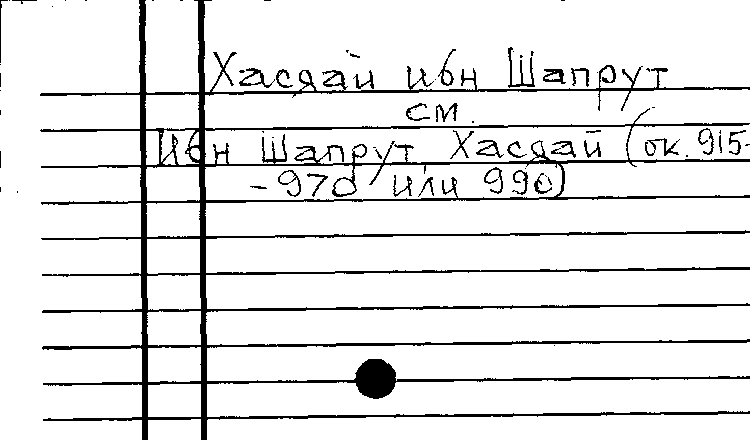 Хасдай ибн Шапрут
см.
Ибн Шапрут, Хасдай (ок. 915-
-970 или 990)